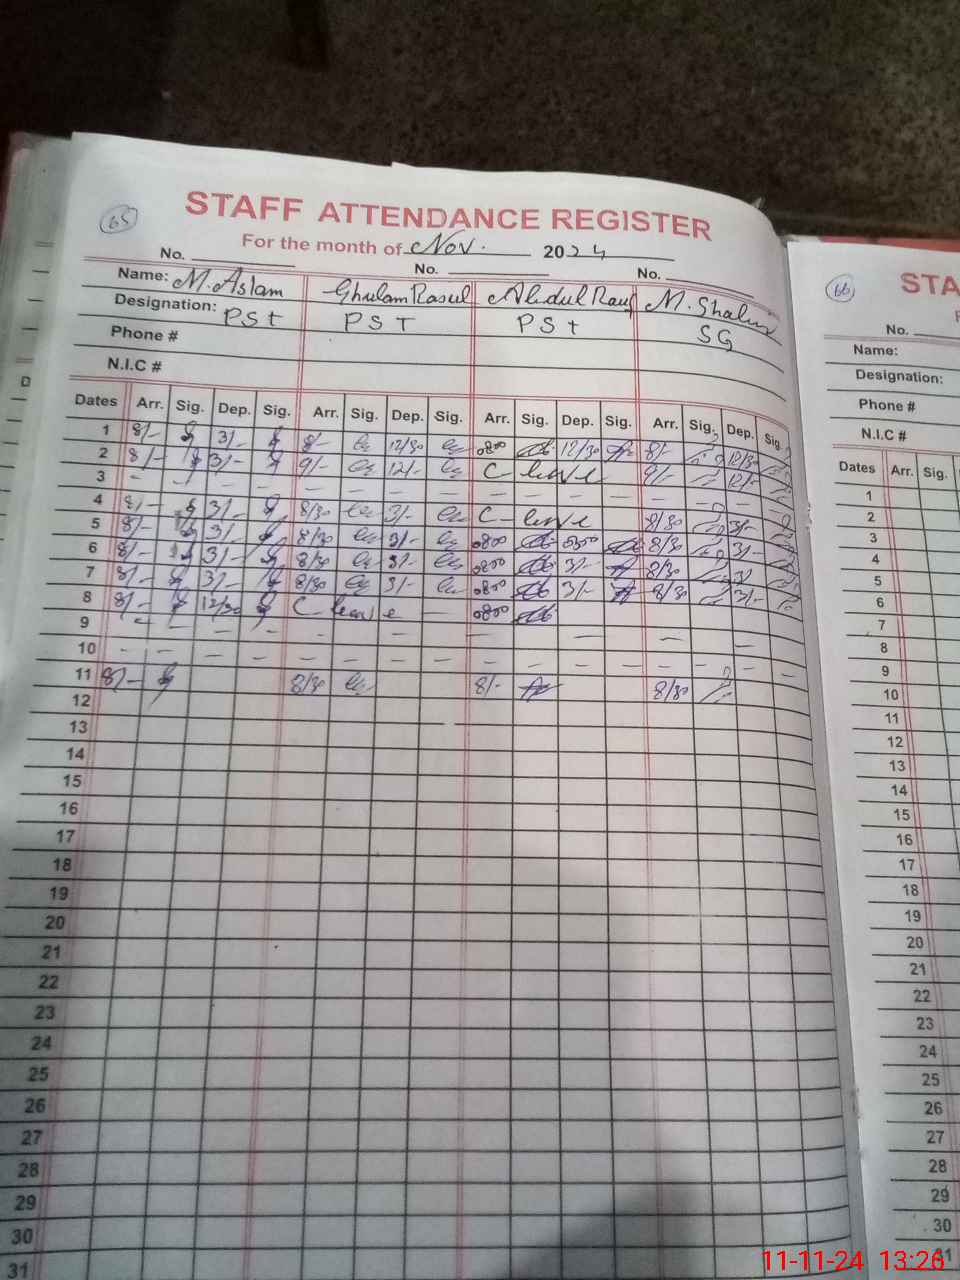 65
STAFF ATTENDANCE REGISTER
For the month of Nov. 2024
No. No. No.
Name: M. Aslam Ghulam Rasul Abdul Rauf M.
Designation: PST PST PST SG
Phone #
N.I.C #
Dates Arr. Sig. Dep. Sig. Arr. Sig. Dep. Sig. Arr. Sig. Dep. Sig. Arr. Sig. Dep. Sig.
1 8/- 3/- 8/- 12/30 0800 12/30 8/- 12/30
2 8/- 3/- 9/- 12/- C - leave 9/- 12/-
3 - - - - - - - - - - -
4 8/- 3/- 8/30 3/- C - leave 8/30 3/-
5 8/- 3/- 8/30 3/- 0800 8/30 3/-
6 8/- 3/- 8/30 3/- 0800 3/- 8/30
7 8/- 3/- 8/30 3/- 0800 3/- 8/30 3/-
8 8/- 12/30 C - leave - 0800
9 - - - - - - - -
10 - - - - - - - - - - -
11 8/- 8/30 8/- 8/30
12
13
14
15
16
17
18
19
20
21
22
23
24
25
26
27
28
29
30
31
66
STA
No.
Name:
Designation:
Phone #
N.I.C #
Dates Arr. Sig.
1
2
3
4
5
6
7
8
9
10
11
12
13
14
15
16
17
18
19
20
21
22
23
24
25
26
27
28
29
30
31
11-11-24 13:26